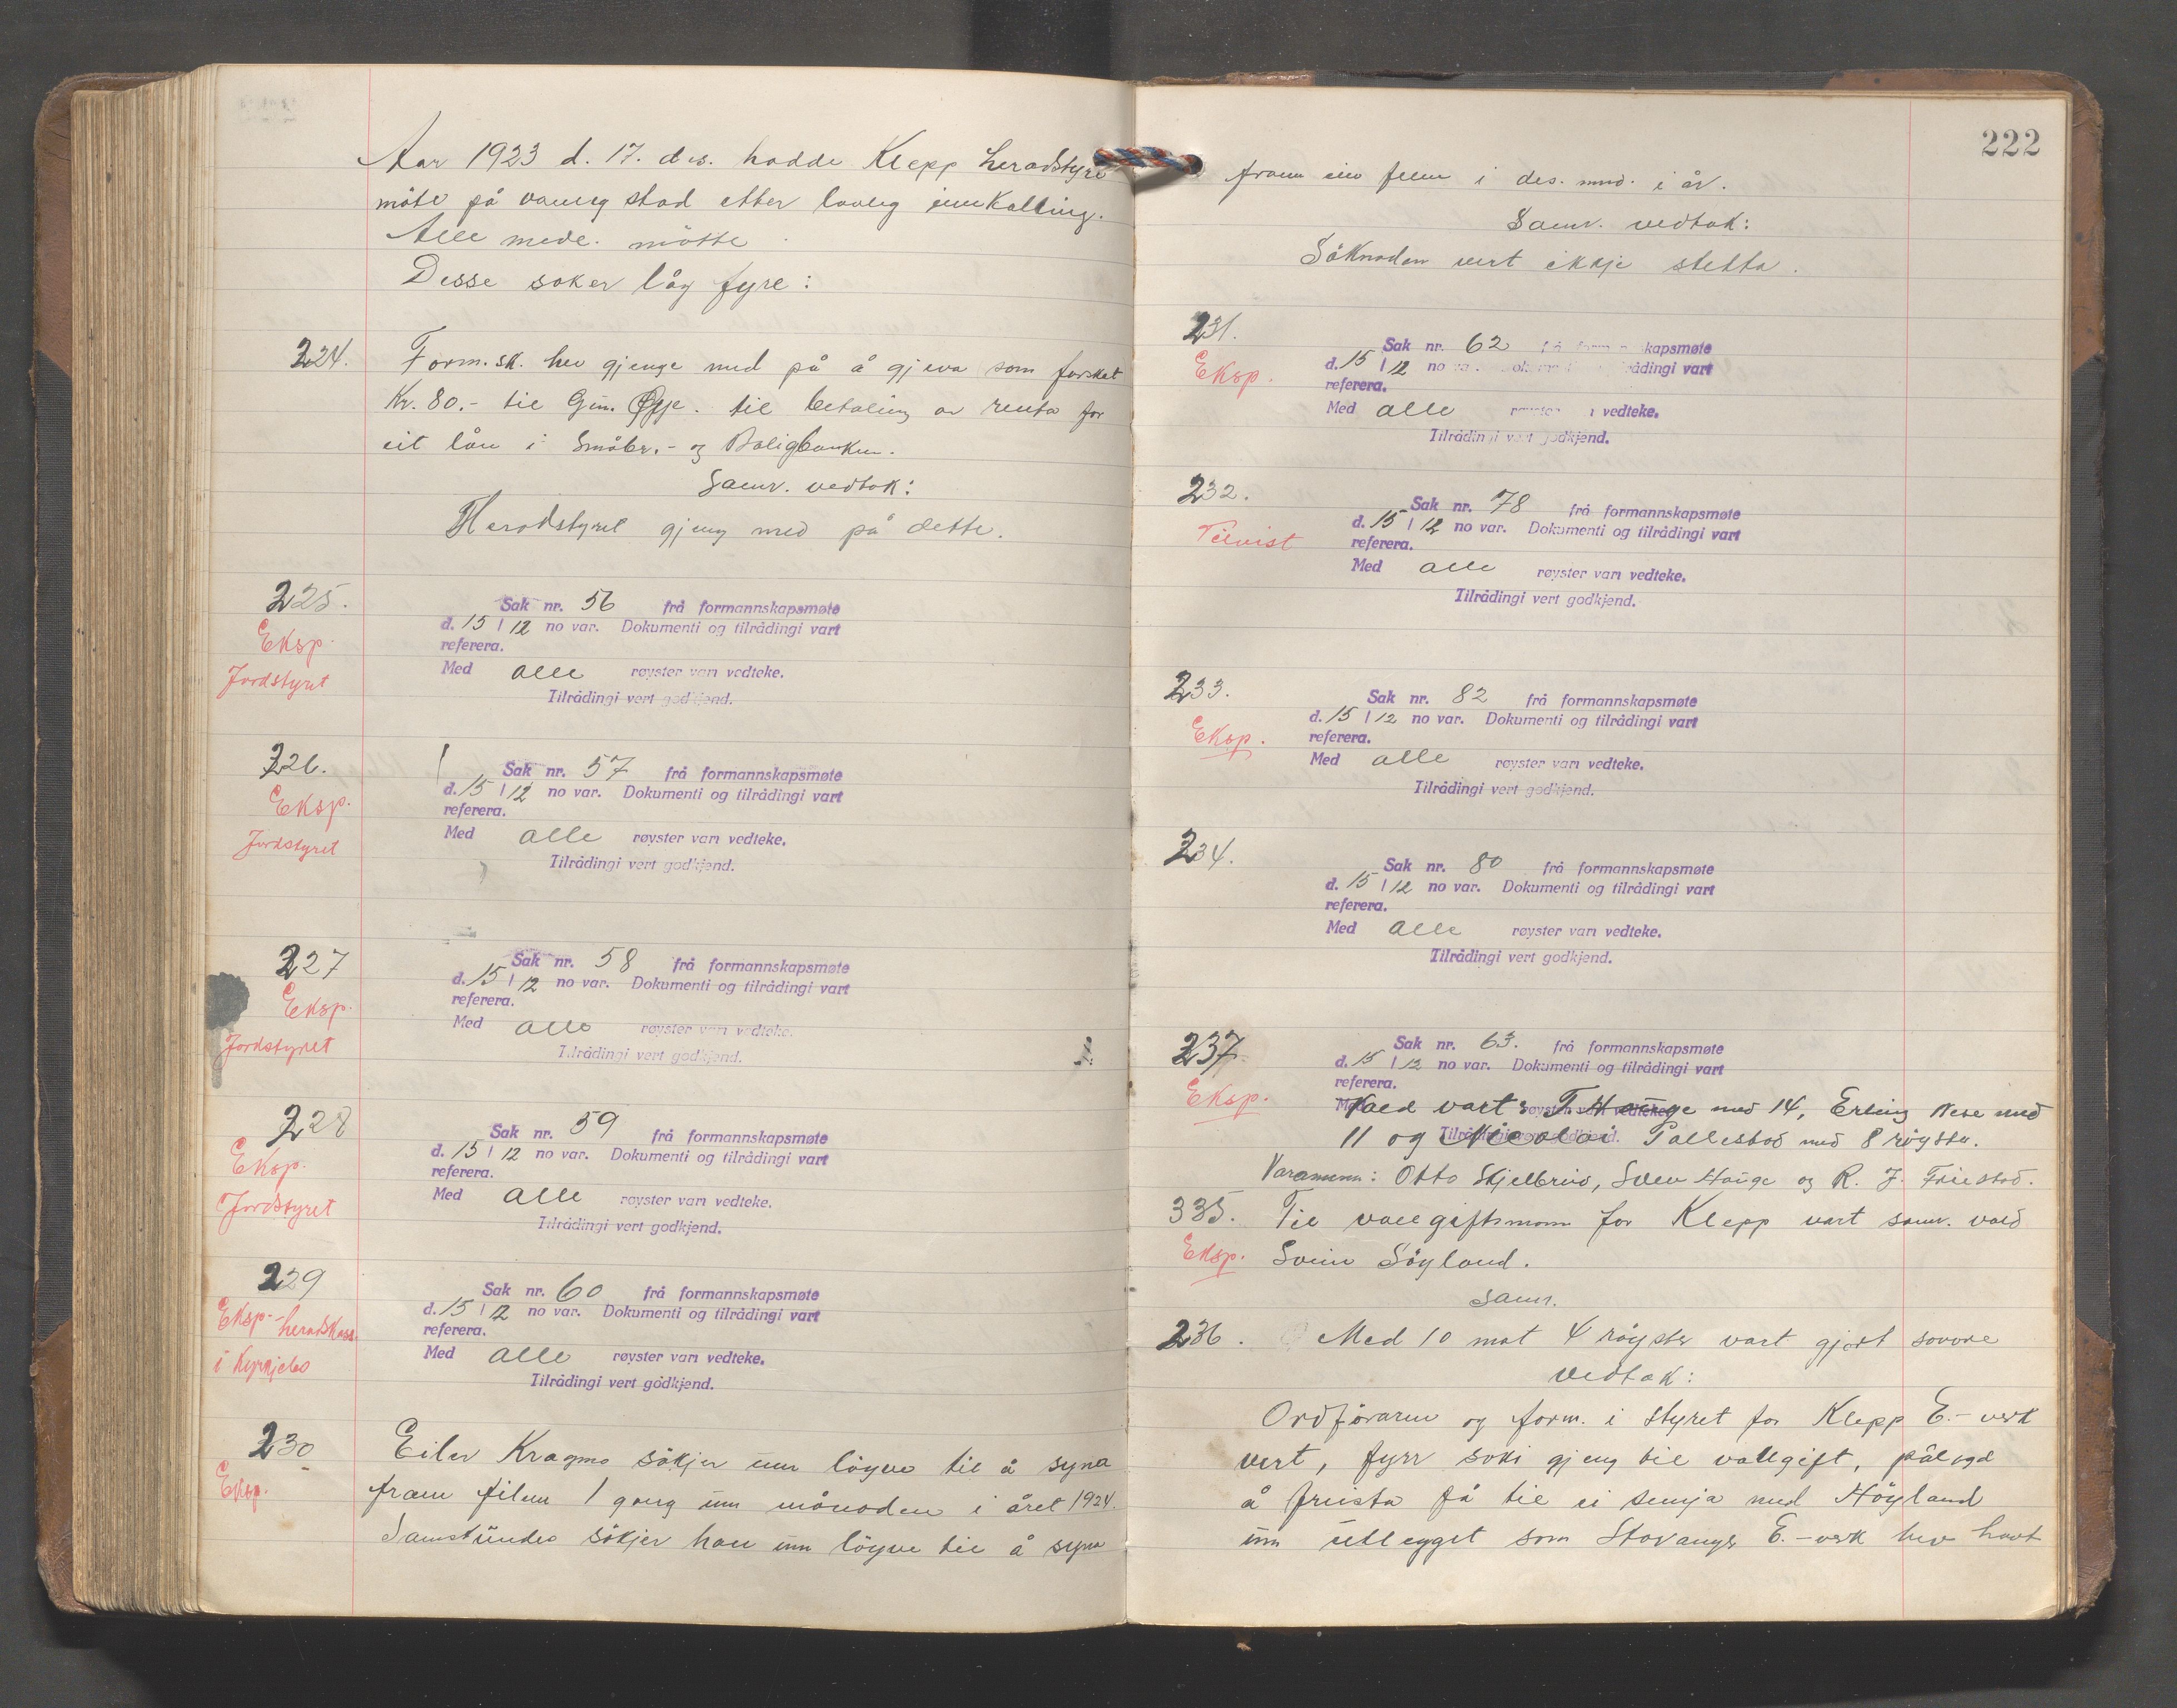 Aar 1923 d. 17. des. hadde Klepp heradstyre
möte på vanleg stad etter lovleg innkalling.
Alle medl. mötte.
Desse saker låg fyre:
224. Form.sk. hev gjenge med på å gjeva som forskot
Kr. 80.- til Gun. til betaling av renta for
eit lån i Småbr.- og Boligbanken.
Samr. vedtok:
Heradstyret gjeng med på dette.
225. Sak nr. 56 frå formannskapsmøte
Eksp. d. 15 / 12 no var. Dokumenti og tilrådingi vart
referera.
Jordstyret Med alle røyster vart vedteke.
Tilrådingi vert godkjend.
226. Sak nr. 57 frå formannskapsmøte
Eksp. d. 15 / 12 no var. Dokumenti og tilrådingi vart
referera.
Jordstyret Med alle røyster vart vedteke.
Tilrådingi vert godkjend.
227 Sak nr. 58 frå formannskapsmøte
Eksp. d. 15 / 12 no var. Dokumenti og tilrådingi vart
referera.
Jordstyret Med alle røyster vart vedteke.
Tilrådingi vert godkjend.
228 Sak nr. 59 frå formannskapsmøte
Eksp. d. 15 / 12 no var. Dokumenti og tilrådingi vart
referera.
Jordstyret Med alle røyster vart vedteke.
Tilrådingi vert godkjend.
229 Sak nr. 60 frå formannskapsmøte
Eksp. heradskass. d. 15 / 12 no var. Dokumenti og tilrådingi vart
referera.
i Med alle røyster vart vedteke.
Tilrådingi vert godkjend.
230 Eiler Kragmo sökjer um löyve til å syna
Eksp. fram film 1 gong um månaden i året 1924.
Samstundes sökjer han um löyve til å syna
222
fram ein film i des. mnd. i år.
Samr. vedtok:
Söknaden vert ikkje stetta.
231. Sak nr. 62 frå formannskapsmøte
Eksp. d. 15 / 12 no var. Dokumenti og tilrådingi vart
referera.
Med alle røyster vart vedteke.
Tilrådingi vert godkjend.
232. Sak nr. 78 frå formannskapsmøte
d. 15 / 12 no var. Dokumenti og tilrådingi vart
referera.
Med alle røyster vart vedteke.
Tilrådingi vert godkjend.
233. Sak nr. 82 frå formannskapsmøte
Eksp. d. 15 / 12 no var. Dokumenti og tilrådingi vart
referera.
Med alle røyster vart vedteke.
Tilrådingi vert godkjend.
234. Sak nr. 80 frå formannskapsmøte
d. 15 / 12 no var. Dokumenti og tilrådingi vart
referera.
Med alle røyster vart vedteke.
Tilrådingi vert godkjend.
237. Sak nr. 63. frå formannskapsmøte
Eksp. d. 15 / 12 no var. Dokumenti og tilrådingi vart
referera.
Vald vart: T. Hauge med 14, Erling Nese med
11 og Nicolai Pallestad med 8 röyster.
Varamenn: Otto Skjelbred, Sven Hauge og R. J. Friestad.
335. Til vollgiftsmann for Klepp vart samr. vald
Eksp. Svein Söyland.
Samr.
236. Med 10 mot 4 röyster vart gjort sovore
vedtak:
Ordföraren og form. i styret for Klepp E.-verk
vert, fyrr saki gjeng til vollgift, pålagd
å freista få til ei semja med Höyland
um utlegget som Stavanger E.-verk hev havt